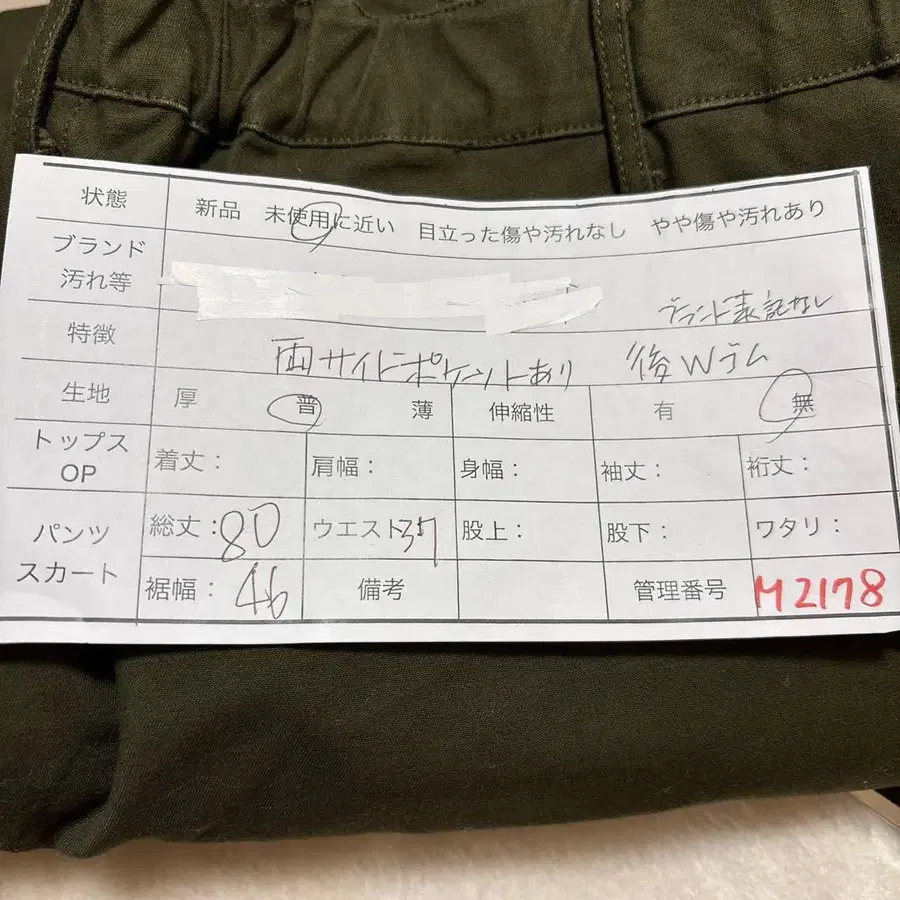 状態 新品 未使用に近い 目立った傷や汚れなし やや傷や汚れあり
ブランド
汚れ等 ブランド表記なし
特徴 両サイドポケットあり 後Wゴム
生地 厚 普 薄 伸縮性 有 無
トップス
OP 着丈： 肩幅： 身幅： 袖丈： 裄丈：
パンツ
スカート
総丈：80 ウエスト37 股上： 股下： ワタリ：
裾幅：46 備考 管理番号 M2178